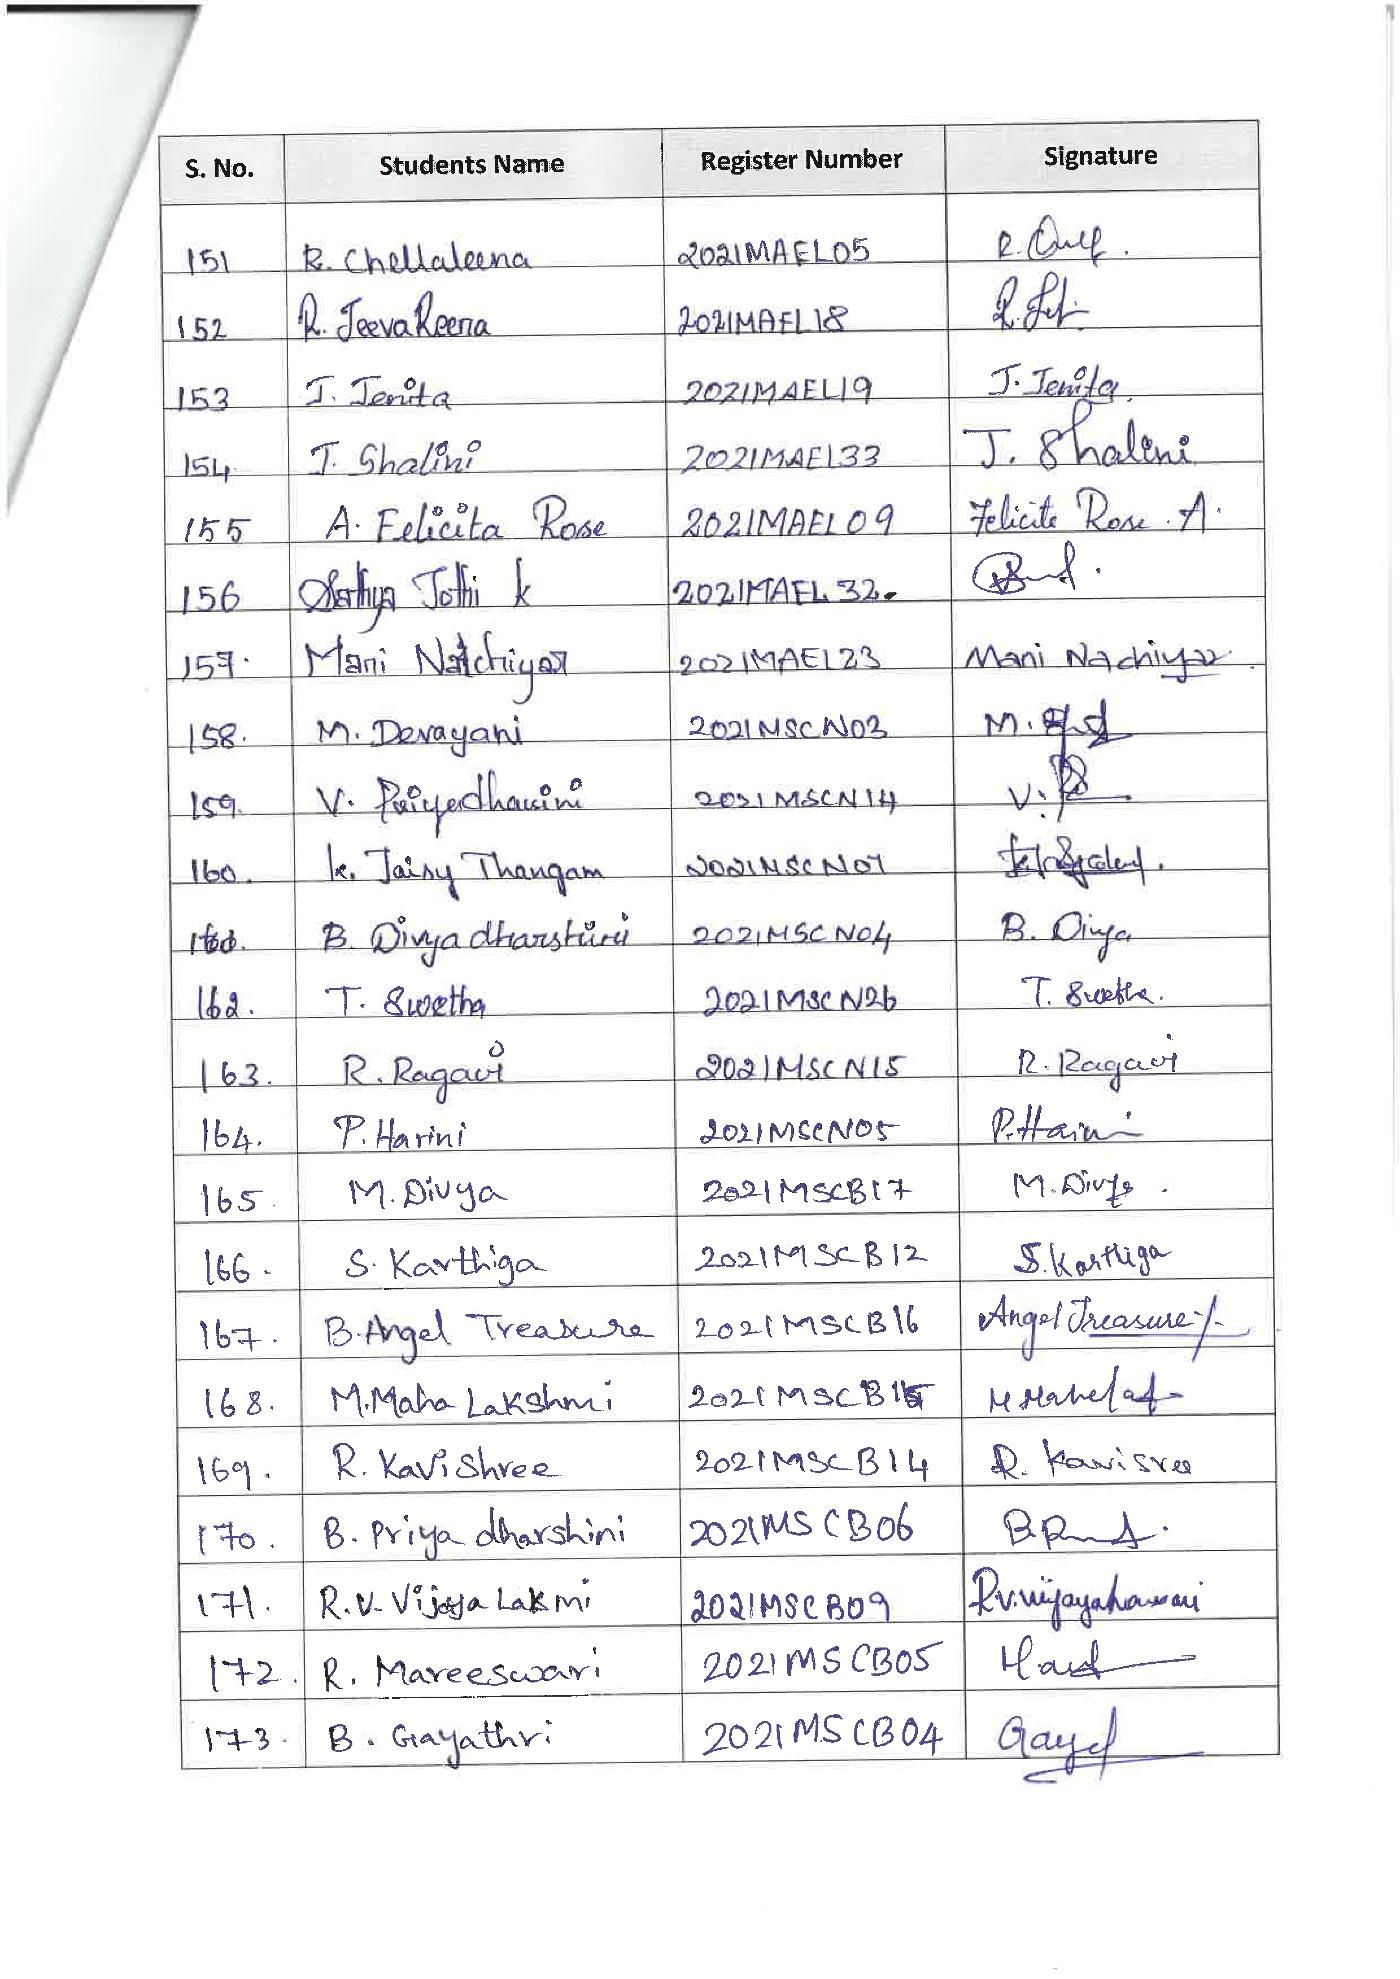 S. No. Students Name Register Number Signature
151 R. Chellaleena 2021MAEL05 R.
152 R. JeevaReena 2021MAEL18 R.
153 J. Jenita 2021MAEL19 J. Jenita
154 J. Shalini 2021MAEL33 J. Shalini
155 A. Felicita Rose 2021MAEL09 Felicita Rose . A.
156 Sathya Jothi k 2021MAEL32.
157. Mani Natchiyar 2021MAEL23 Mani Nachiyar
158. M. Devayani 2021MSCN03 M.
159. V. Priyadharsini 2021MSCN14 V.
160. K. Jaisy Thangam 2021MSCN07
B. Divyadharshini 2021MSCN04 B. Divya
162. T. Swetha 2021MSCN26 T. Swetha.
163. R. Ragavi 2021MSCN15 R. Ragavi
164. P. Harini 2021MSCN05 P. Harini
165. M. Divya 2021MSCB17 M. Divya .
166. S. Karthiga 2021MSCB12 S. Karthiga
167. B. Angel Treasure 2021MSCB16 Angel Treasure
168. M. Maha Lakshmi 2021MSCB15
169. R. Kavishree 2021MSCB14 R. Kavisree
170. B. Priya dharshini 2021MSCB06
171. R.V. Vijaya Lakmi 2021MSCB09
172. R. Mareeswari 2021MSCB05
173. B. Gayathri 2021MSCB04